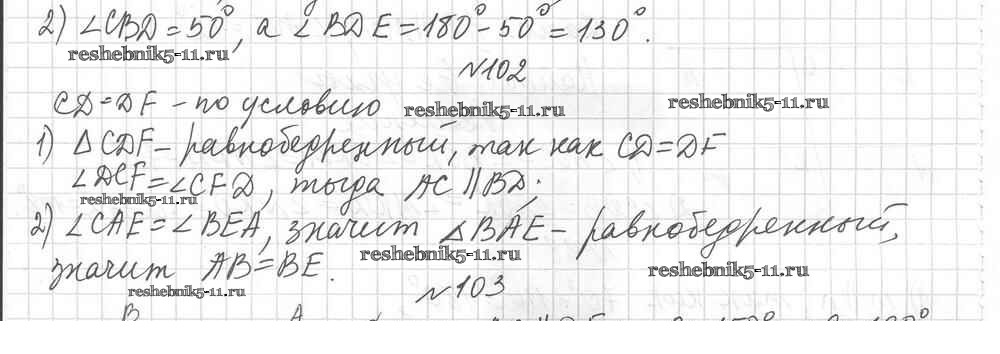 2) ∠CBD = 50°, а ∠BDE = 180° - 50° = 130°.
reshebnik5-11.ru
№102
CD = DF - по условию
reshebnik5-11.ru
reshebnik5-11.ru
1) △CDF - равнобедренный, так как CD = DF
∠DCF = ∠CFD, тогда AC ∥ BD;
reshebnik5-11.ru
2) ∠CAE = ∠BEA, значит △BAE - равнобедренный,
reshebnik5-11.ru
reshebnik5-11.ru
значит AB = BE.
reshebnik5-11.ru
№103
B A